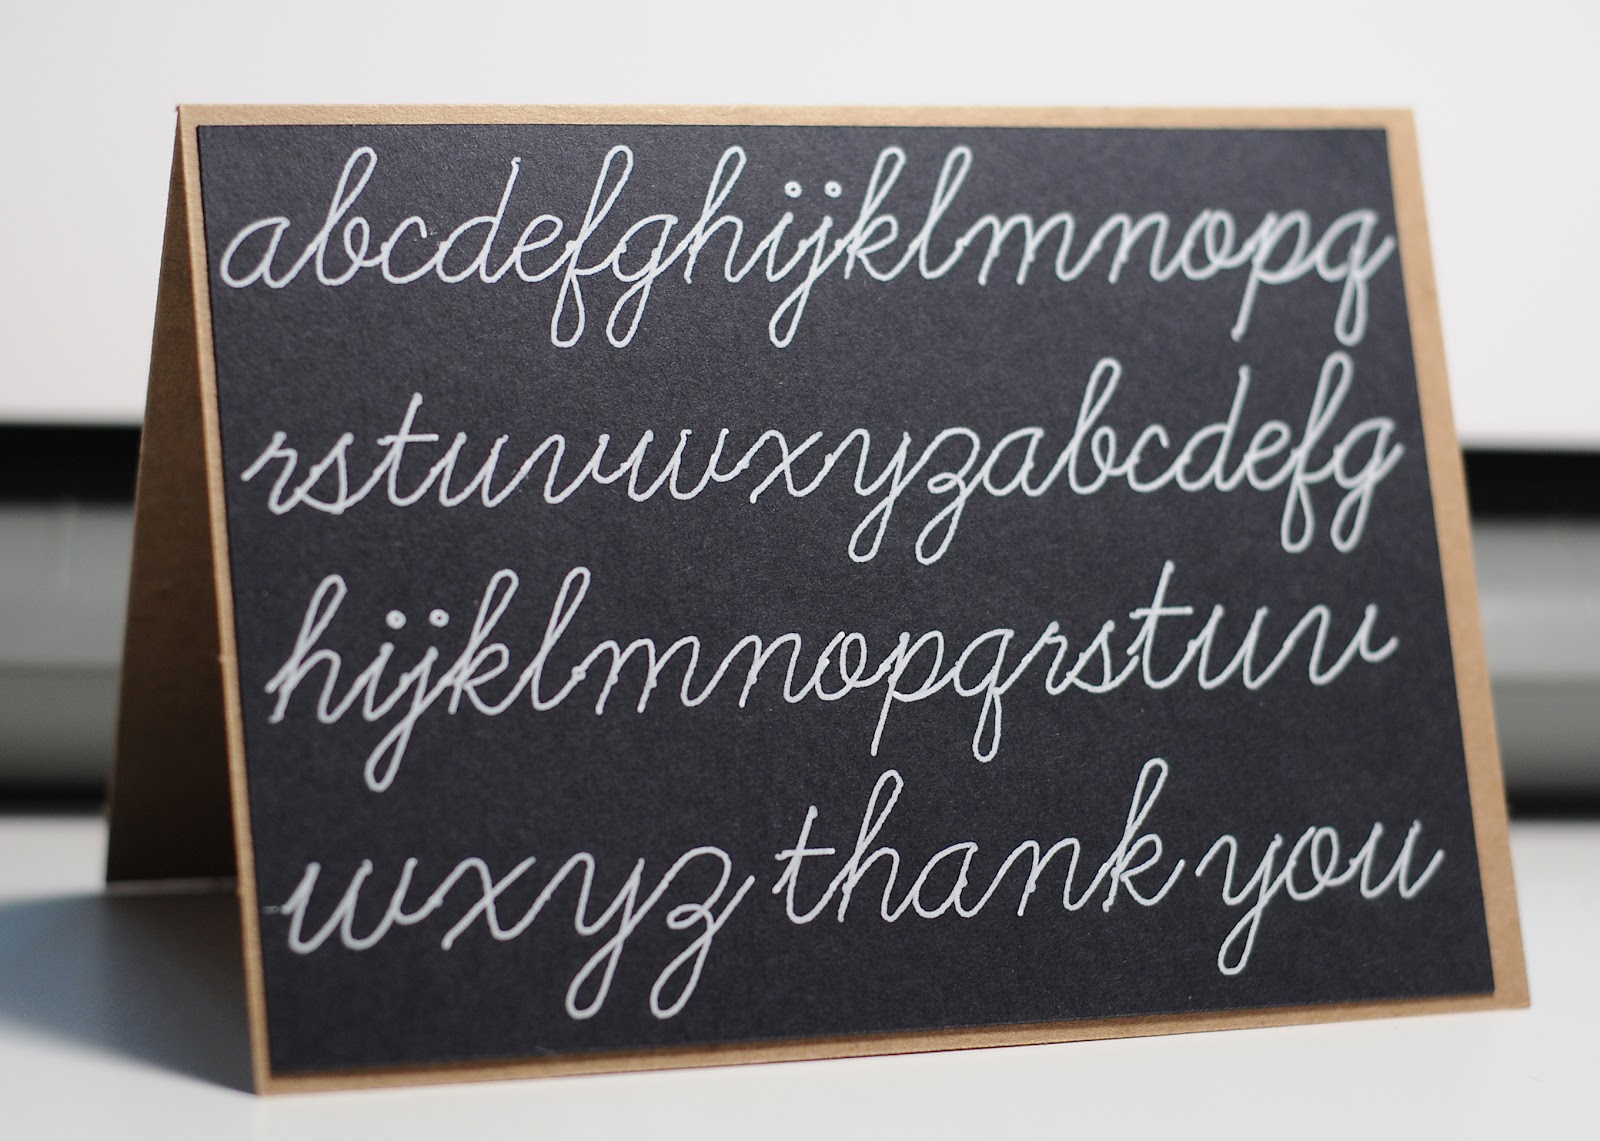 abcdefghijklmnopq
rstuvwxyzabcdefg
hijklmnopqrstuv
wxyz thank you